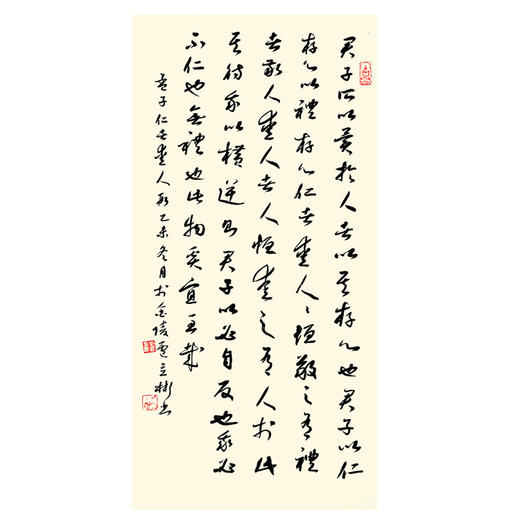 君子所以異於人者以其存心也君子以仁
存心以禮存心仁者愛人〻恒敬之有禮
者敬人愛人者人恒愛之有人於此
其待我以橫逆則君子以必自反也我必
不仁也無禮也此物奚宜至哉
孟子仁者愛人乙未冬月於金陵立彬書